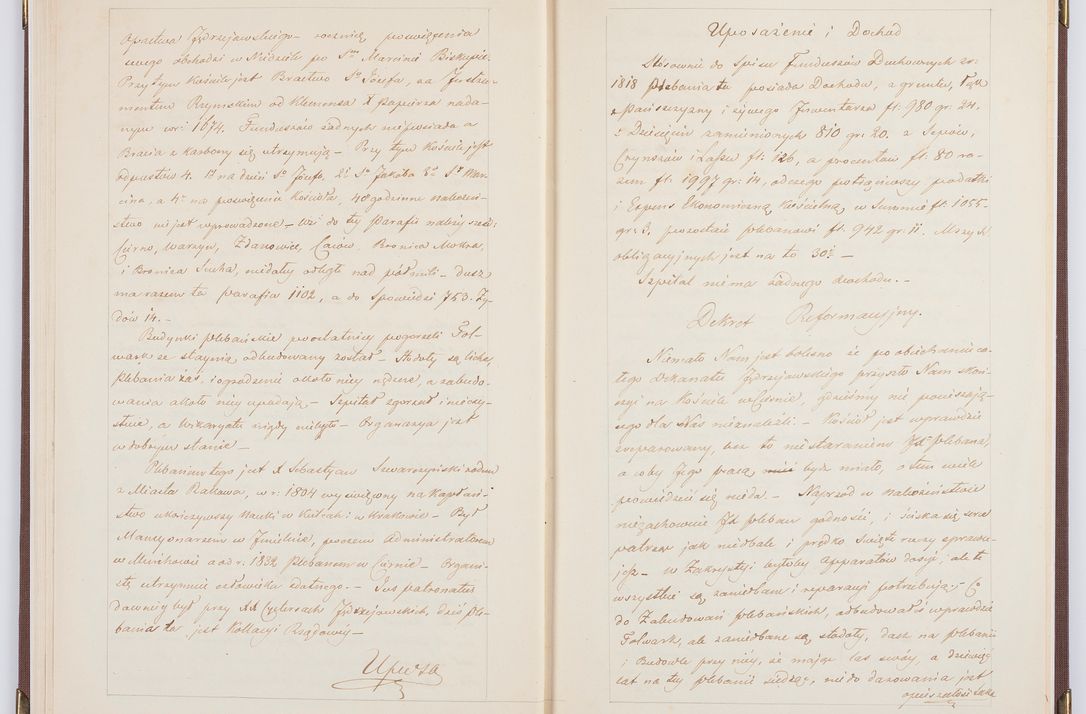 Opactwa Jędrzejowskiego rocznicę poświęcenia
swego obchodzi w Niedzielę po Sm Marcinie Biskupie.
Przy tym Kościele jest Bractwo So Józefa, za Instru-
mentem Rzymskim od Klemensa X papieża nada-
nym w r: 1674. Funduszów żadnych nie posiada a
Bracia z karbony się utrzymują – Przy tym Kościele jest
odpustów 4. 1y na dzień So Józefa, 2i So Jakóba 3i So Mar-
cina, a 4y na poświęcenie Kościoła, 40 godzinne nabożeń-
stwo nie jest wprowadzone – Wsi do tej Parafii należy sześć:
Cierno, Warzyn, Zdanowice, Caców, Brynica Mokra,
i Brynica Sucha, niedalej odległe nad pół mili – Dusz
ma razem ta parafia 1102, a do Spowiedzi 753. Ży-
dów 14. –
Budynki plebańskie w ostatniej pogorzeli Fol-
wark ze stajnią odbudowany został – Stodoły są liche,
Plebania zaś, i ogrodzenie około niej nędzne, a zabudo-
wania około niej upadają – Szpital zgorzał i nieczy-
stwe, a Wikaryatu nigdy niebyło – Organarya jest
w dobrym stanie –
Plebanem tego jest X Sebastyan Swarczyński rodem
z Miasta Rakowa, w r: 1804 wyświęcony na Kapłań-
stwo ukończywszy Nauki w Kielcach i w Krakowie – Był
Mansyonarzem w Imielnie, poczem Administratorem
w Mnichowie a od r. 1832 Plebanem w Ciernie – Organi-
stę utrzymuie człowieka zdatnego. – Jus patronatus
dawniej był przy XX Cystersach Jędrzejowskich, dziś ple-
bania ta jest Kollacyi Rządowej –
Uposażenie i Dochód
Stósownie do Spisu Funduszów Duchownych zr:
1818 Plebania ta posiada Dochodu, z gruntu, Łąk
z Pańszczyzny i żywego Inwentarza fl: 980 gr. 24.
z Dziesięcin zamienionych 810 gr: 20. z Sepów,
Czynszów i Lasu fl: 126, a procentów fl: 80 ra-
zem fl. 1997 gr: 14, od czego potrąciwszy podatki
i Expens Ekonomiczną Kościelną w Summie fl. 1055.
gr: 3, pozostaie plebanowi fl. 942 gr: 11. Mszy S.
obligacyjnych jest na to 30i –
Szpital niema żadnego dochodu. –
Dekret Reformacyjny.
Niemało Nam jest bolesno że po objechaniu ca-
łego dekanatu Jędrzejowskiego przyszło Nam skoń-
czyć na Kościele w Ciernie, gdzieśmy nic pocieszają-
cego dla Nas nieznaleźli. – Kościół jest wprawdzie
zreparowany, lecz to niestaraniem JX plebana,
a coby Jego pracą być miało, o tem wiele
powiedzieć się nieda. – Naprzód w nabożeństwie
niezachowuie JX pleban godności, i ściska się serce
patrząc jak niedbale i prędko święte rzeczy sprawu-
je – W Zakrystyi byłoby apparatów dosyć, ale te
wszystkie są zaniedbane i reparacyi potrzebują – Co
do Zabudowań plebańskich, odbudował wprawdzie
Folwark, ale zaniedbane są stodoły, dach na plebanii
i Budowle przy niej, że mając las swój, a dziewięć
lat na tej plebanii siedząc, nie do darowania jest
opieszałość taka